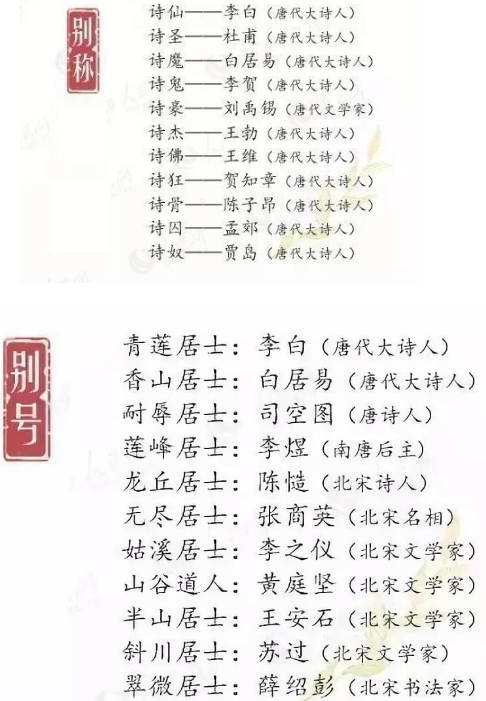 别称
诗仙——李白（唐代大诗人）
诗圣——杜甫（唐代大诗人）
诗魔——白居易（唐代大诗人）
诗鬼——李贺（唐代大诗人）
诗豪——刘禹锡（唐代文学家）
诗杰——王勃（唐代大诗人）
诗佛——王维（唐代大诗人）
诗狂——贺知章（唐代大诗人）
诗骨——陈子昂（唐代大诗人）
诗囚——孟郊（唐代大诗人）
诗奴——贾岛（唐代大诗人）
别号
青莲居士：李白（唐代大诗人）
香山居士：白居易（唐代大诗人）
耐辱居士：司空图（唐诗人）
莲峰居士：李煜（南唐后主）
龙丘居士：陈慥（北宋诗人）
无尽居士：张商英（北宋名相）
姑溪居士：李之仪（北宋文学家）
山谷道人：黄庭坚（北宋文学家）
半山居士：王安石（北宋文学家）
斜川居士：苏过（北宋文学家）
翠微居士：薛绍彭（北宋书法家）